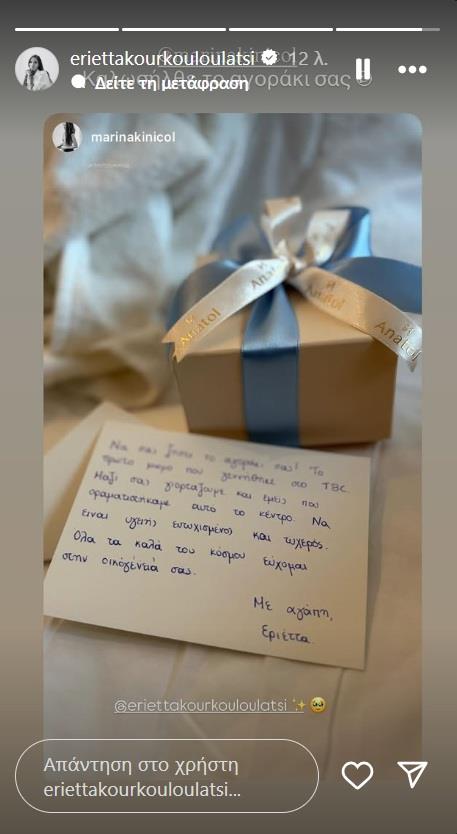 @marinakinicol
eriettakourkouloulatsi 12 λ.
Καλωσήλθε το αγοράκι σας
Δείτε τη μετάφραση
marinakinicol
Anatol
Anatol
Anatol
Να σας ζήσει το αγοράκι σας! Το
πρώτο μωρό που γεννήθηκε στο TBC.
Μαζί σας γιορτάζουμε και εμείς που
οραματιστήκαμε αυτό το κέντρο. Να
είναι υγιής ευτυχισμένος και τυχερός.
Όλα τα καλά του κόσμου εύχομαι
στην οικογένειά σας.
Με αγάπη,
Εριέττα.
@eriettakourkouloulatsi
Απάντηση στο χρήστη
eriettakourkouloulatsi...